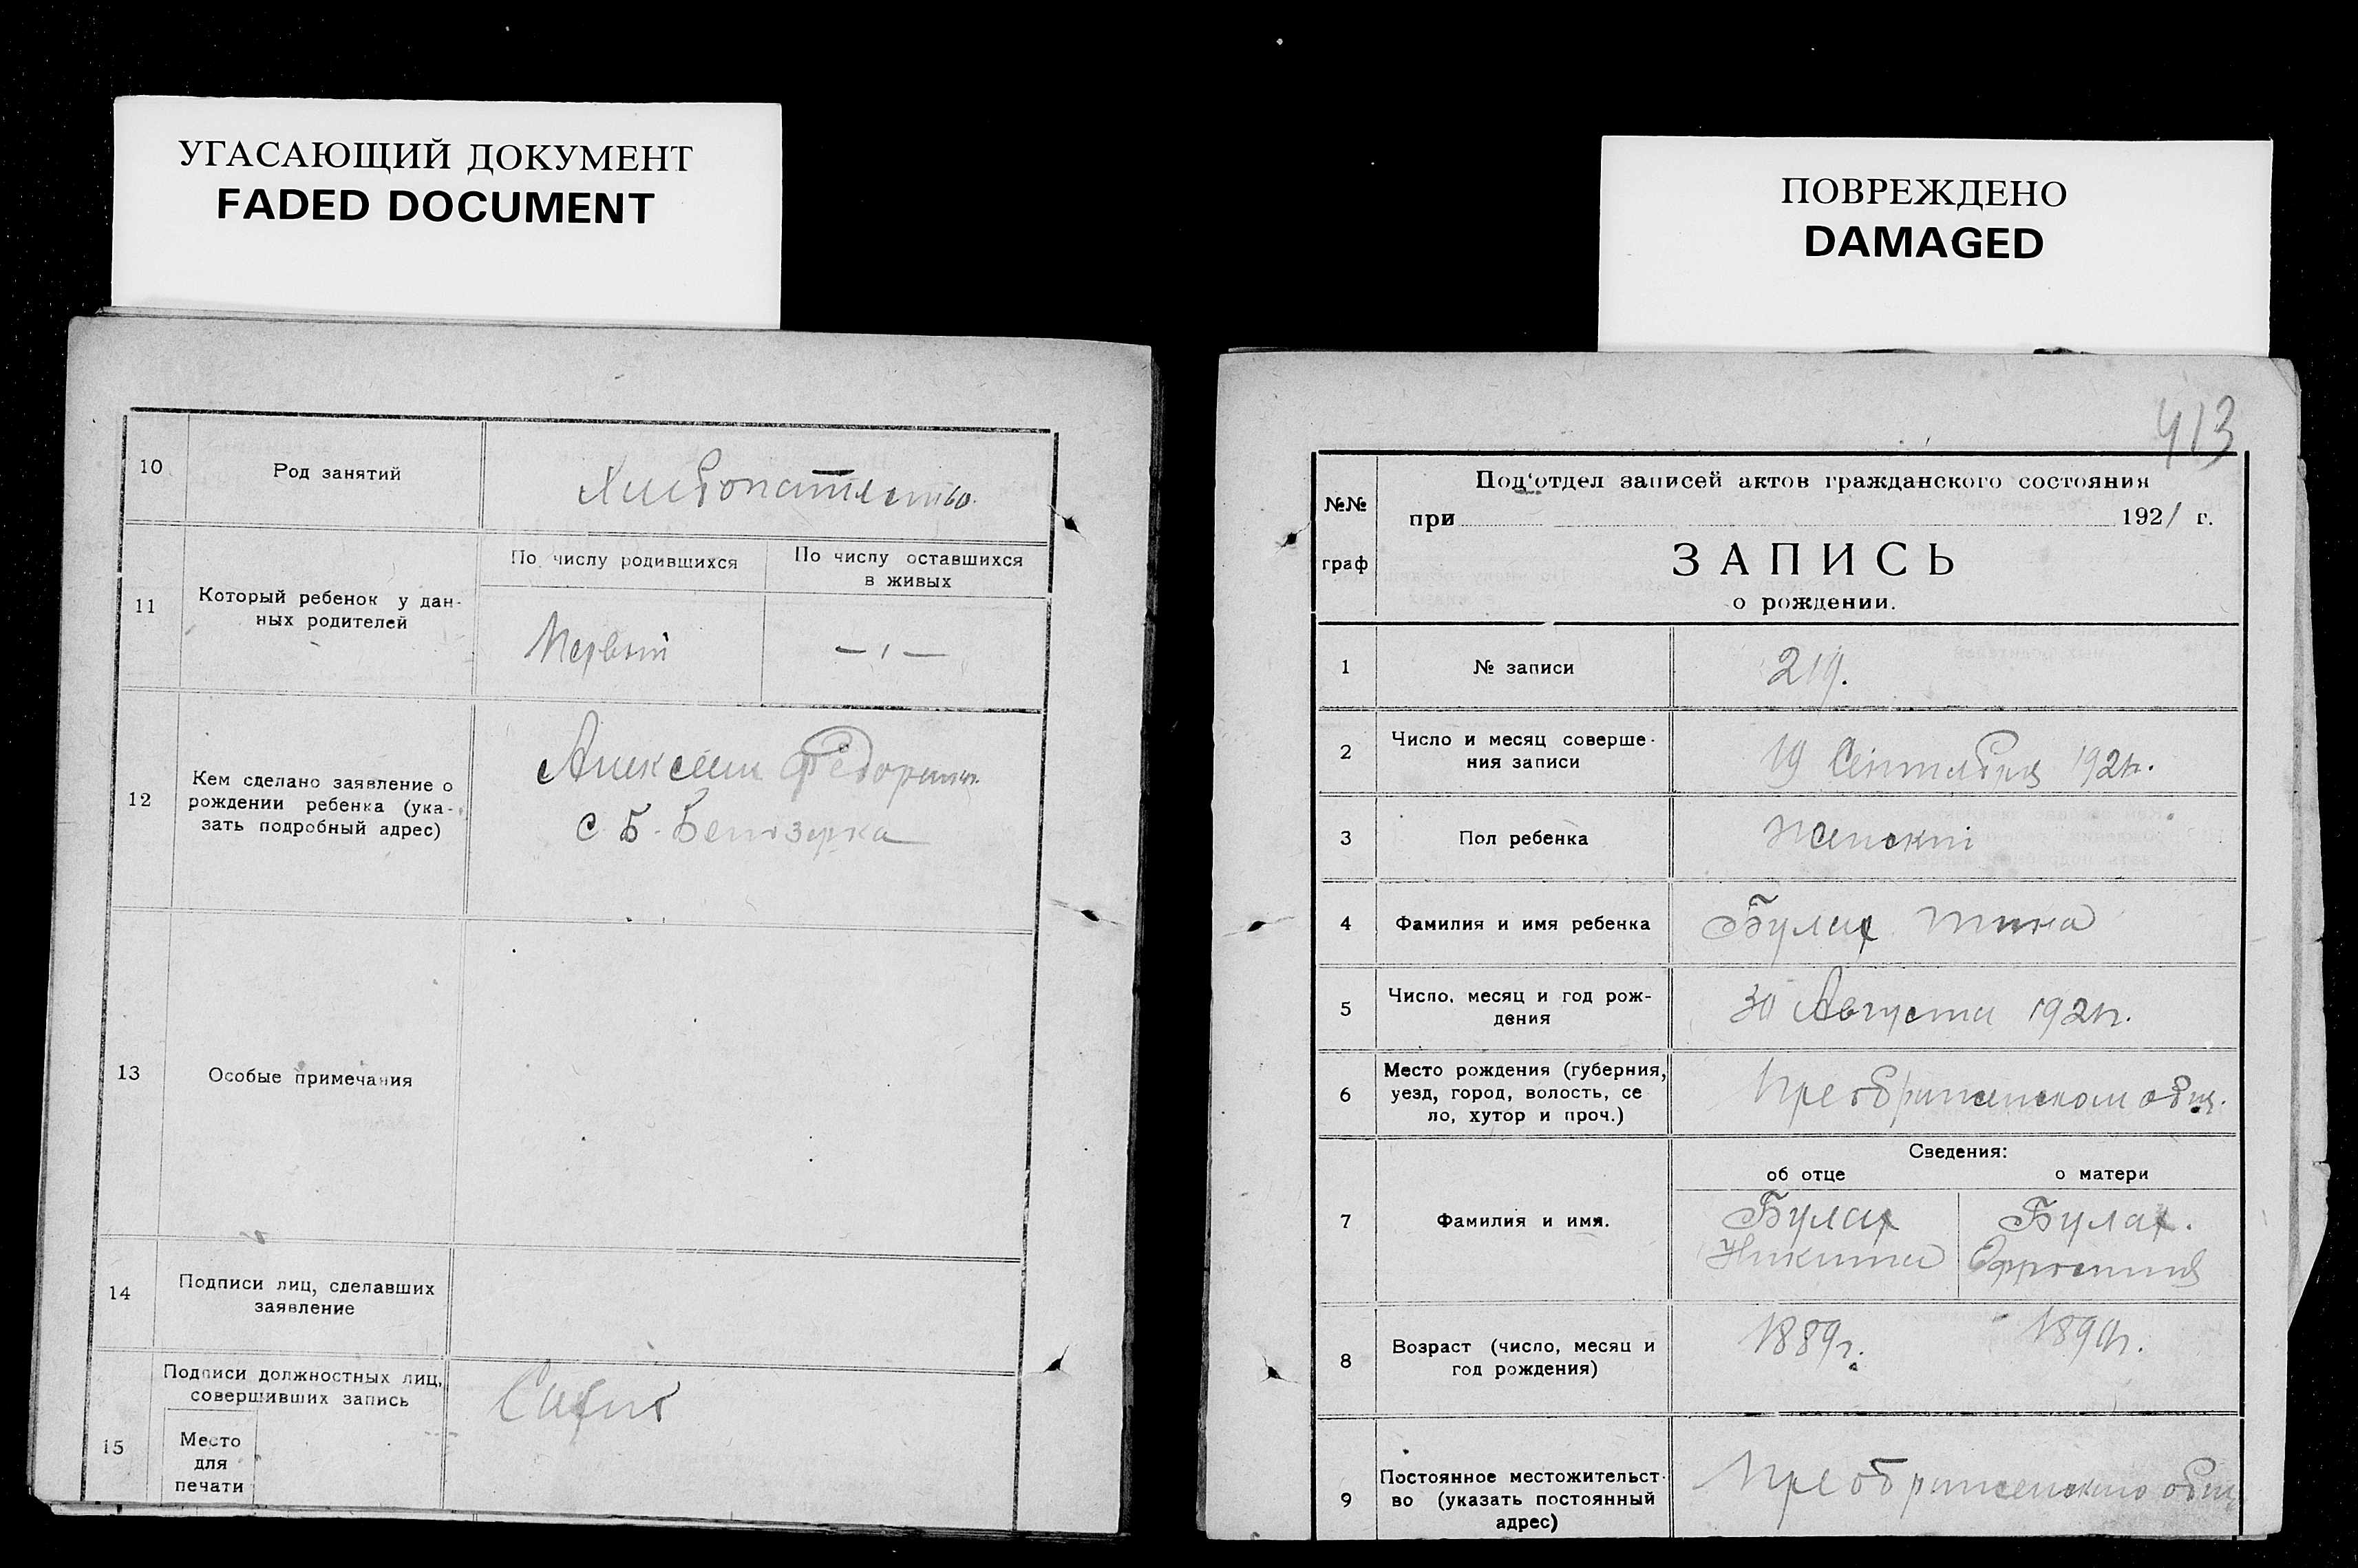 УГАСАЮЩИЙ ДОКУМЕНТ
FADED DOCUMENT
10
Род занятий
Хлебопашество.
11
Который ребенок у дан-
ных родителей
По числу родившихся
По числу оставшихся
в живых
Первый
— „ —
12
Кем сделано заявление о
рождении ребенка (ука-
зать подробный адрес)
Алексеем
с Б. Белозерка
13
Особые примечания
14
Подписи лиц, сделавших
заявление
15
Подписи должностных лиц,
совершивших запись
Место
для
печати
ПОВРЕЖДЕНО
DAMAGED
413
№№
граф
Под‘отдел записей актов гражданского состояния
при 1921 г.
ЗАПИСЬ
о рождении.
1
№ записи
219.
2
Число и месяц соверше-
ния записи
19 Сентября 1921г.
3
Пол ребенка
Женский
4
Фамилия и имя ребенка
Булах
5
Число, месяц и год рож-
дения
30 Августа 1921г.
6
Место рождения (губерния,
уезд, город, волость, се
ло, хутор и проч.)
Преображенском общ.
Сведения:
об отце
о матери
7
Фамилия и имя.
Булах
Никита
Булах.
Ефросиния
8
Возраст (число, месяц и
год рождения)
1889г.
9
Постоянное местожительст-
во (указать постоянный
адрес)
Преображенского общ